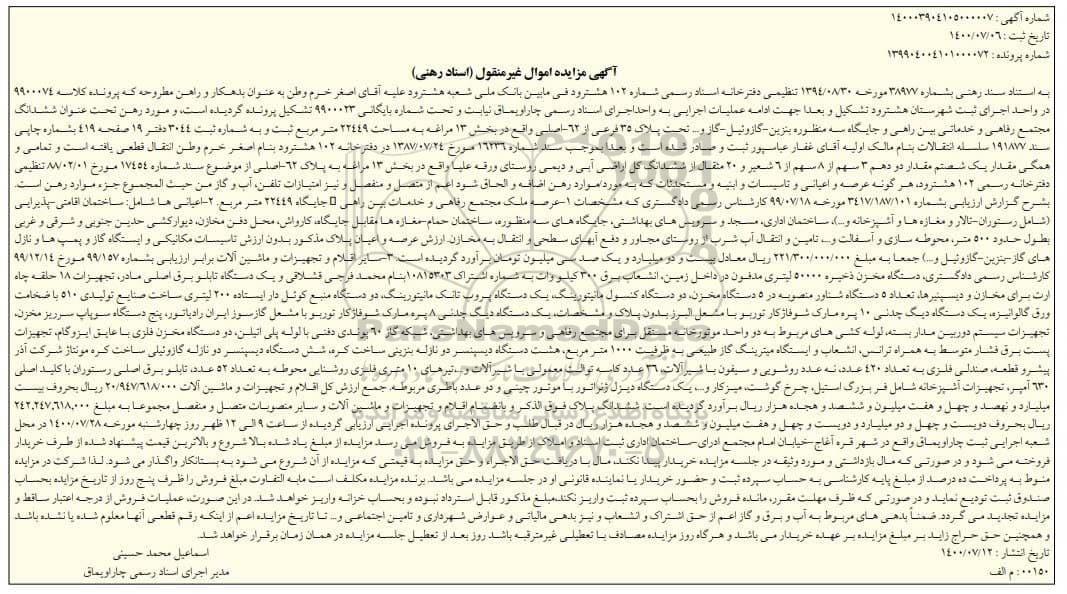 شماره آگهی : ۱۴۰۰۰۳۹۰۴۱۰۵۰۰۰۰۰۷
تاریخ ثبت : ۱۴۰۰/۰۷/۰۶
شماره پرونده : ۱۳۹۹۰۴۰۰۴۱۰۱۰۰۰۰۷۲
آگهی مزایده اموال غیرمنقول (اسناد رهنی)
به استناد سند رهنی بشماره ۳۸۹۷۷ مورخه ۱۳۹۴/۰۸/۳۰ تنظیمی دفترخانه اسناد رسمی شماره ۱۰۲ هشترود فی مابین بانک ملی شعبه هشترود علیه آقای اصغر خرم وطن به عنوان بدهکار و راهن مطروحه که پرونده کلاسه ۹۹۰۰۰۷۴
در واحد اجرای ثبت شهرستان هشترود تشکیل و بعدا جهت ادامه عملیات اجرایی به واحداجرای اسناد رسمی چاراویماق نیابت و تحت شماره بایگانی ۹۹۰۰۰۲۳ تشکیل پرونده گردیده است، و مورد رهن تحت عنوان ششدانگ
مجتمع رفاهی و خدماتی بین راهی و جایگاه سه منظوره بنزین-گازوئیل-گاز و... تحت پلاک ۳۵ فرعی از ۶۲-اصلی واقع در بخش ۱۳ مراغه به مساحت ۲۲۴۴۹ متر مربع ثبت و به شماره ثبت ۳۰۴۴ دفتر ۱۹ صفحه ۴۱۹ بشماره چاپی
سند ۱۹۱۸۷۷ سلسله انتقالات بنام مالک اولیه آقای غفار عباسپور ثبت و صادر شده است و بعدا بموجب سند شماره ۱۶۲۳۶ مورخ ۱۳۸۷/۰۷/۲۴ در دفترخانه ۱۰۲ هشترود بنام اصغر خرم وطن انتقال قطعی یافته است و تمامی و
همگی مقدار یک شصتم مقدار دو دهم ۳ سهم از ۸ سهم از ۶ شعیر و ۲۰ مثقال از ششدانگ کل اراضی آبی و دیمی روستای ورقه علیا واقع در بخش ۱۳ مراغه به پلاک ۶۲-اصلی از موضوع سند شماره ۱۷۴۵۴ مورخ ۸۸/۰۲/۰۱ تنظیمی
دفترخانه رسمی ۱۰۲ هشترود، هر گونه عرصه و اعیانی و تاسیسات و ابنیه و مستحدثات که به مورد/موارد رهن اضافه و الحاق شود اعم از متصل و منفصل و نیز امتیازات تلفن، آب و گاز من حیث المجموع جزء موارد رهن است.
بشرح گزارش ارزیابی بشماره ۳۴۱۷/۱۸۷/۱۰۱ مورخه ۹۹/۰۷/۱۸ کارشناس رسمی دادگستری که مشخصات ۱-عرصه ملک مجتمع رفاهی و خدمات بین راهی جایگاه ۲۲۴۴۹ متر مربع. ۲-اعیانی ها شامل: ساختمان اقامتی-پذیرایی
(شامل رستوران-تالار و مغازه ها و آشپزخانه و...)، ساختمان اداری، مسجد و سرویس های بهداشتی، جایگاه های سه منظوره، ساختمان حمام-مغازه ها مقابل جایگاه، کارواش، محل دفن مخازن، دیوارکشی حدین جنوبی و شرقی و غربی
بطول حدود ۵۰۰ متر، محوطه سازی و آسفالت و...، تامین و انتقال آب شرب از روستای مجاور و دفع آبهای سطحی و انتقال به مخازن. ارزش عرصه و اعیان پلاک مذکور بدون ارزش تاسیسات مکانیکی و ایستگاه گاز و پمپ ها و نازل
های گاز-بنزین-گازوئیل و...) جمعا به مبلغ ۲۲۱/۳۰۰/۰۰۰/۰۰۰ ریال معادل بیست و دو میلیارد و یک صد سی میلیون تومان برآورد گردیده است. ۳-سایر اقلام و تجهیزات و ماشین آلات برابر ارزیابی بشماره ۹۹/۱۵۷ مورخ ۹۹/۱۲/۱۴
کارشناس رسمی دادگستری، دستگاه مخزن ذخیره ۵۰۰۰۰ لیتری مدفون در داخل زمین، انشعاب برق ۳۰۰ کیلو وات به شماره اشتراک ۱۰۸۱۵۳۰۳ بنام محمد فرجی قشلاقی و یک دستگاه تابلو برق اصلی مادر، تجهیزات ۱۸ حلقه چاه
ارت برای مخازن و دیسپنیرها، تعداد ۵ دستگاه شناور منصوبه در ۵ دستگاه مخزن، دو دستگاه کنسول مانیتورینگ، یک دستگاه پروب تانک مانیتورینگ، دو دستگاه منبع کوئل دار ایستاده ۲۰۰ لیتری ساخت صنایع تولیدی ۵۱۰ با ضخامت
ورق گالوانیزه، یک دستگاه دیگ چدنی ۱۰ پره مارک شوفاژکار توربو با مشعل البرز بدون پلاک و مشخصات، یک دستگاه دیگ چدنی ۸ پره مارک شوفاژکار توربو با مشعل گازسوز ایران رادیاتور، پنج دستگاه سوپاپ سرریز مخزن،
تجهیزات سیستم دوربین مدار بسته، لوله کشی های مربوط به دو واحد موتورخانه مستقل برای مجتمع رفاهی و سرویس های بهداشتی، شبکه گاز ۶۰ پوندی دفنی با لوله پلی اتیلن، دو دستگاه مخزن فلزی با عایق ایزوگام، تجهیزات
پست برق فشار متوسط به همراه ترانس، انشعاب و ایستگاه میترینگ گاز طبیعی به ظرفیت ۱۰۰۰ متر مربع، هشت دستگاه دیسپنسر دو نازله بنزینی ساخت کره، شش دستگاه دیسپنسر دو نازله گازوئیلی ساخت کره مونتاژ شرکت آذر
پیشرو قطعه، صندلی فلزی به تعداد ۴۲۰ عدد، نه عدد روشویی و سیفون با شیرآلات، ۲۶ عدد کاسه توالت معمولی با شیرآلات و...،تیرهای ۱۰ متری فلزی روشنایی محوطه به تعداد ۵۲ عدد، تابلو برق اصلی رستوران با کلید اصلی
۶۳۰ آمپر، تجهیزات آشپزخانه شامل فر بزرگ استیل، چرخ گوشت، میزکار و...، یک دستگاه دیزل ژنراتور با موتور چینی و دو عدد باطری مربوطه. جمع ارزش کل اقلام و تجهیزات و ماشین آلات ۲۰/۹۴۷/۶۱۸/۰۰۰ ریال بحروف بیست
میلیارد و نهصد و چهل و هفت میلیون و ششصد و هجده هزار ریال برآورد گردیده است. ششدانگ پلاک فوق الذکر و بانضمام اقلام و تجهیزات و ماشین آلات و سایر منصوبات متصل و منفصل مجموعا به مبلغ ۲۴۲,۲۴۷,۶۱۸,۰۰۰
ریال بحروف دویست و چهل و دو میلیارد و دویست و چهل و هفت میلیون و ششصد و هجده هزار ریال در قبال طلب و حق الاجرای پرونده اجرایی ارزیابی گردیده از ساعت ۹ الی ۱۲ ظهر روز چهارشنبه مورخه ۱۴۰۰/۰۷/۲۸ در محل
شعبه اجرایی ثبت چاراویماق واقع در شهر قره آغاج-خیابان امام مجتمع ادرای-ساختمان اداری ثبت اسناد و املاک از طریق مزایده به فروش می رسد. مزایده از مبلغ یاد شده بالا شروع و بالاترین قیمت پیشنهاد شده از طرف خریدار
فروخته می شود و در صورتی که مال بازداشتی و مورد وثیقه در جلسه مزایده خریدار پیدا نکند، مال با دریافت حق الاجراء و حق مزایده به قیمتی که مزایده از آن شروع می شود به بستانکار واگذار می شود. لذا شرکت در مزایده
منوط به پرداخت ده درصد از مبلغ پایه کارشناسی به حساب سپرده ثبت و حضور خریدار یا نماینده قانونی او در جلسه مزایده می باشد. برنده مزایده مکلف است مابه التفاوت مبلغ فروش را ظرف پنج روز از تاریخ مزایده بحساب
صندوق ثبت تودیع نماید و در صورتی که ظرف مهلت مقرر، مانده فروش را بحساب سپرده ثبت واریز نکند،مبلغ مذکور قابل استرداد نبوده و بحساب خزانه واریز خواهد شد. در این صورت، عملیات فروش از درجه اعتبار ساقط و
مزایده تجدید می گردد. ضمناً بدهی های مربوط به آب و برق و گاز اعم از حق اشتراک و انشعاب و نیز بدهی مالیاتی و عوارض شهرداری و تامین اجتماعی و... تا تاریخ مزایده اعم از اینکه رقم قطعی آنها معلوم شده یا نشده باشد
و همچنین حق حراج زاید بر مبلغ مزایده بر عهده خریدار می باشد و هرگاه روز مزایده مصادف با تعطیلی غیرمترقبه باشد روز بعد از تعطیل جلسه مزایده در همان زمان برقرار خواهد شد.
تاریخ انتشار : ۱۴۰۰/۰۷/۱۲
اسماعیل محمد حسینی
مدیر اجرای اسناد رسمی چاراویماق
۰۰۱۵۰: م الف
ParsNamadData
پایگاه اطلاع رسانی مناقصه و مزایده
۰۲۱-۸۸۳۴۹۶۷۰-۵